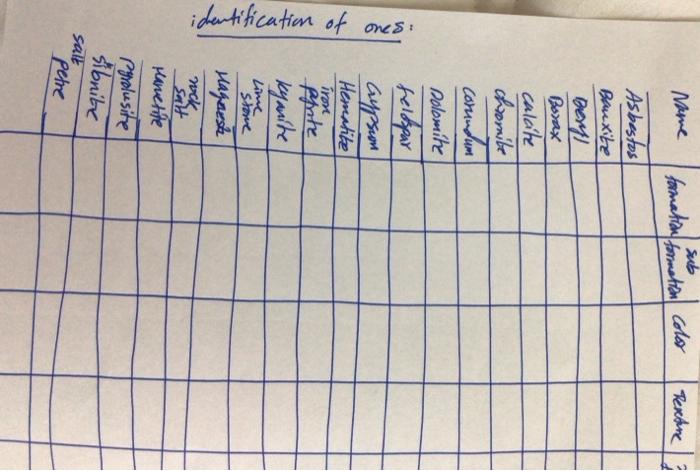 identification of ores:
Name formation sub formation Color Texture
Asbastos
Bauxite
Beryl
Borax
calcite
chromite
corundum
Dolomite
feldspar
Gypsum
Hematite
iron pyrite
kyanite
Lime stone
rock salt
Pyrolusite
Stibnite
salt petre